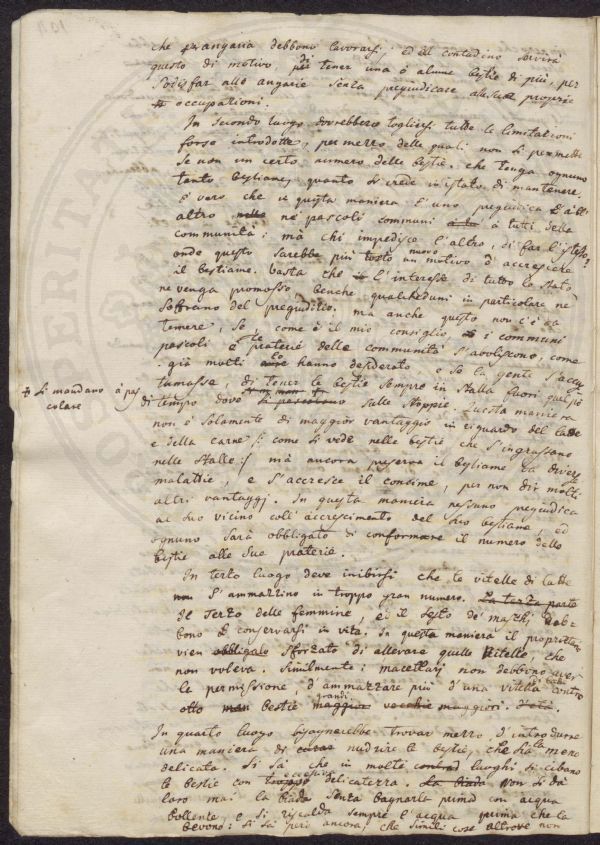 che per angaria debbono lavorarsi; ed il contadino servirà
questo di motivo di tener una ò alcune bestie di più, per
sodisfar alle angarie senza pregiudicare alle sue proprie
occupationi.
In secondo luogo dovrebbero togliersi tutte le limitationi
forse introdotte, per mezzo delle quali non si permette
se non un certo numero delle bestie. che tenga ognuno
tanto bestiame, quanto si crede in istato di mantenere.
E vero che in questa maniera l'uno pregiudica l'al-
altro ne' pascoli communi à tutti della
communità: mà chi impedisce l'altro, di far l'istesso?
onde questo sarebbe più tosto un nuovo motivo d'accrescere
il bestiame. basta che l'interesse di tutto lo stato
ne venga promosso benche qualcheduni in particolare ne
soffrano del pregiuditio. ma anche questo non c'è da
temere, se, come è il mio consiglio i communi
pascoli e le praterie delle communità s'aboliscono, come
già molti lo hanno desiderato e se la gente s'accu-
tumasse, di tener le bestie sempre in stalla fuori quel più
# si mandano à pas
colare
di tempo dove sulle stoppie. questa maniera
non è solamente di maggior vantaggio in riguardo del latte
e della carne /: come si vede nelle bestie che s'ingrassano
nelle stalle :/ mà ancora preserva il bestiame da diverse
malattie, e s'accresce il concime, per non dir molti
altri vantaggj. In questa maniera nessuno pregiudica
al suo vicino coll' accrescimento del suo bestiame, ed
ognuno sarà obbligato di conformare il numero delle
bestie alle sue praterie.
In terzo luogo deve inibirsi che le vitelle di latte
s'ammazzino in troppo gran numero. La terza parte
Il Terzo delle femmine, ed il sesto de' maschj, deb-
bono conservarsi in vita. In questa maniera il proprietario
vien obbligato sforzato di allevare quelle vitelle, che
non voleva. Similmente i macellarj non debbono aver
la permissione, d'ammazzare più d'una vitella di latte contro
otto bestie grandi maggiori vecchie maggiori. d'età.
In quarto luogo bisognerebbe trovar mezzo, d'introdurre
una maniera di nudrire le bestie, che sia la meno
delicata. Si sà che in molti luoghi si cibano
le bestie con troppa eccessiva delicatezza. La biada Non si dà
loro mai la biada senza bagnarla prima con acqua
bollente, e si riscalda sempre l'acqua prima che la
bevono: si sà però ancora, che simili cose altrove non